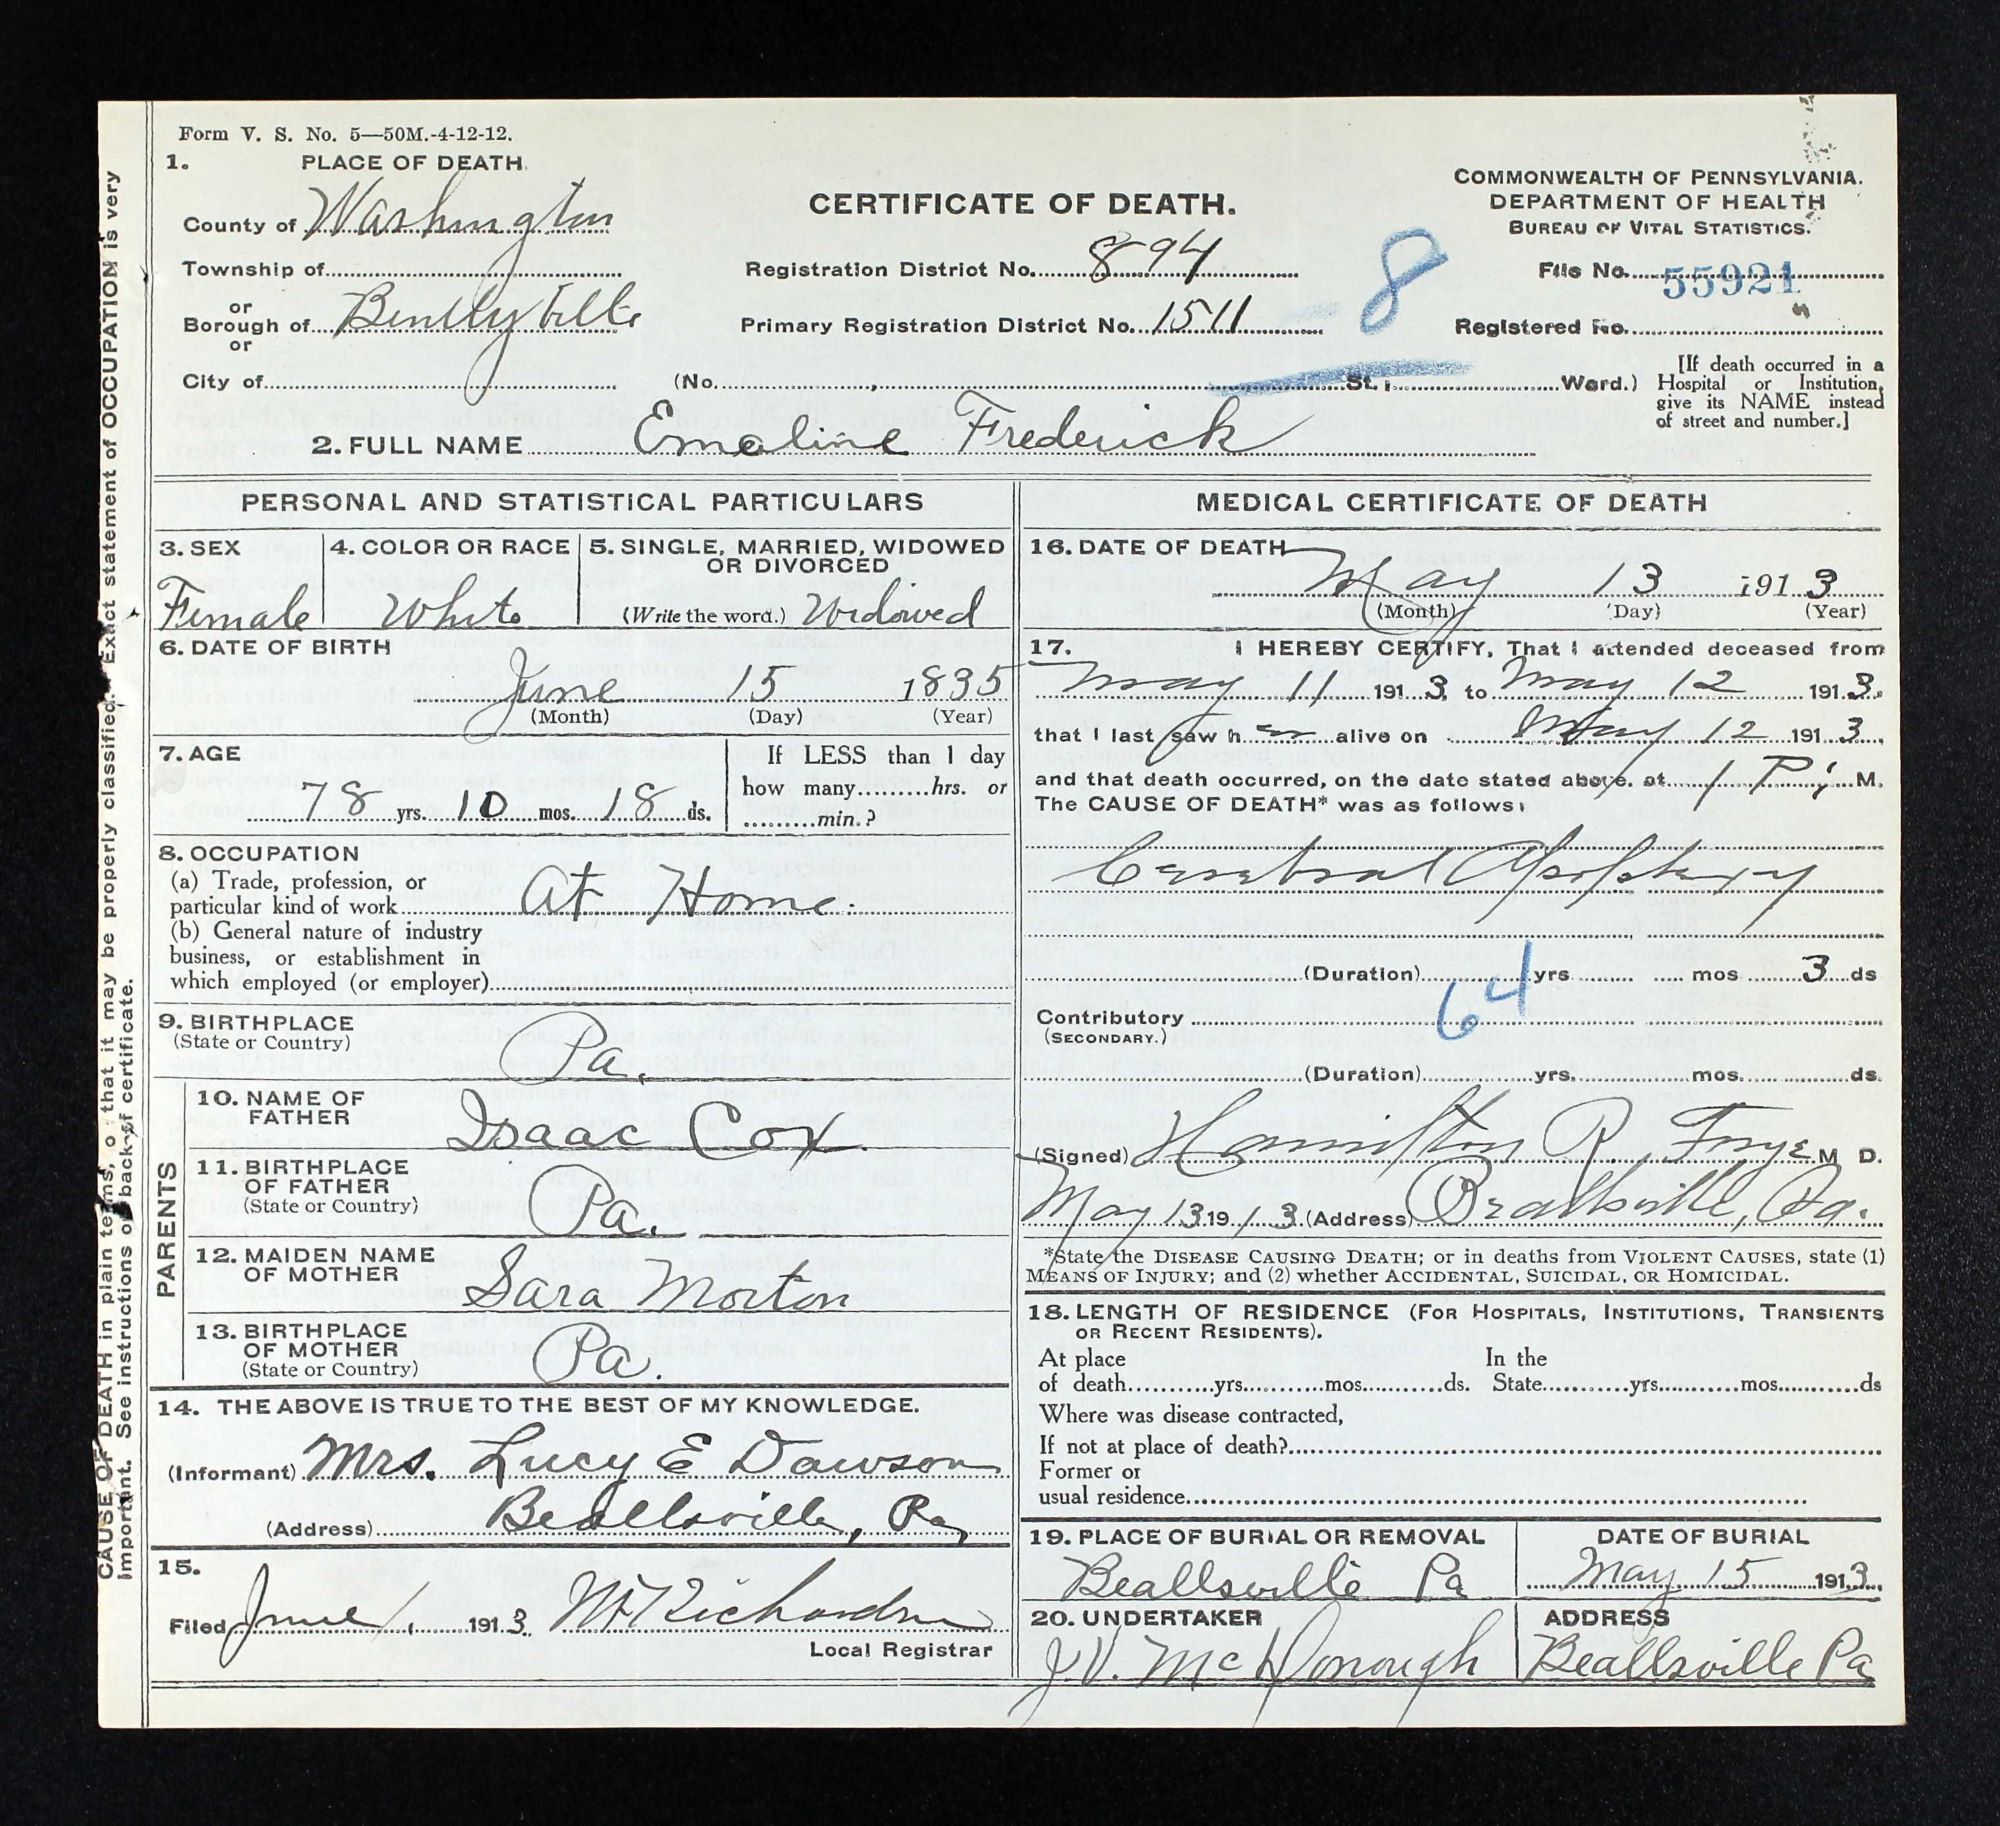 Form V. S. No. 5—50M.-4-12-12.
1. PLACE OF DEATH.
County of Washington
Township of
or
Borough of Bentleyville
or
City of
CERTIFICATE OF DEATH.
Registration District No. 894
Primary Registration District No. 1511
8
(No. , St.; Ward.)
COMMONWEALTH OF PENNSYLVANIA.
DEPARTMENT OF HEALTH
BUREAU OF VITAL STATISTICS.
File No. 55921
Registered No.
[If death occurred in a
Hospital or Institution,
give its NAME instead
of street and number.]
2. FULL NAME Emaline Frederick
PERSONAL AND STATISTICAL PARTICULARS
3. SEX
Female
4. COLOR OR RACE
White
5. SINGLE, MARRIED, WIDOWED
OR DIVORCED
(Write the word.) Widowed
6. DATE OF BIRTH
June 15 1835
(Month) (Day) (Year)
7. AGE
78 yrs. 10 mos. 18 ds.
If LESS than 1 day
how many hrs. or
min.?
8. OCCUPATION
(a) Trade, profession, or
particular kind of work At Home.
(b) General nature of industry
business, or establishment in
which employed (or employer)
9. BIRTHPLACE
(State or Country)
Pa.
PARENTS
10. NAME OF
FATHER
Isaac Cox
11. BIRTHPLACE
OF FATHER
(State or Country)
Pa.
12. MAIDEN NAME
OF MOTHER
Sara Morton
13. BIRTHPLACE
OF MOTHER
(State or Country)
Pa.
14. THE ABOVE IS TRUE TO THE BEST OF MY KNOWLEDGE.
(Informant) Mrs. Lucy E Dawson
(Address) Beallsville, Pa,
15.
Filed June 1, 1913 Richardson
Local Registrar
MEDICAL CERTIFICATE OF DEATH
16. DATE OF DEATH
May 13 1913
(Month) (Day) (Year)
17. I HEREBY CERTIFY, That I attended deceased from
May 11 1913, to May 12 1913.
that I last saw her alive on May 12 1913,
and that death occurred, on the date stated above, at 1 P. M.
The CAUSE OF DEATH* was as follows:
Cerebral Apoplexy
(Duration) yrs mos 3 ds
64
Contributory
(SECONDARY.)
(Duration) yrs. mos. ds.
(Signed) Hamilton R. Frye M D.
May 13 1913 (Address) Beallsville, Pa.
*State the DISEASE CAUSING DEATH; or in deaths from VIOLENT CAUSES, state (1)
MEANS OF INJURY; and (2) whether ACCIDENTAL, SUICIDAL, OR HOMICIDAL.
18. LENGTH OF RESIDENCE (FOR HOSPITALS, INSTITUTIONS, TRANSIENTS
OR RECENT RESIDENTS).
At place In the
of death yrs. mos. ds. State yrs. mos. ds
Where was disease contracted,
If not at place of death?
Former or
usual residence
19. PLACE OF BURIAL OR REMOVAL
Beallsville Pa
DATE OF BURIAL
May 15 1913.
20. UNDERTAKER
J.V. McDonough
ADDRESS
Beallsville Pa
CAUSE OF DEATH in plain terms, so that it may be properly classified. Exact statement of OCCUPATION is very
important. See instructions on back of certificate.